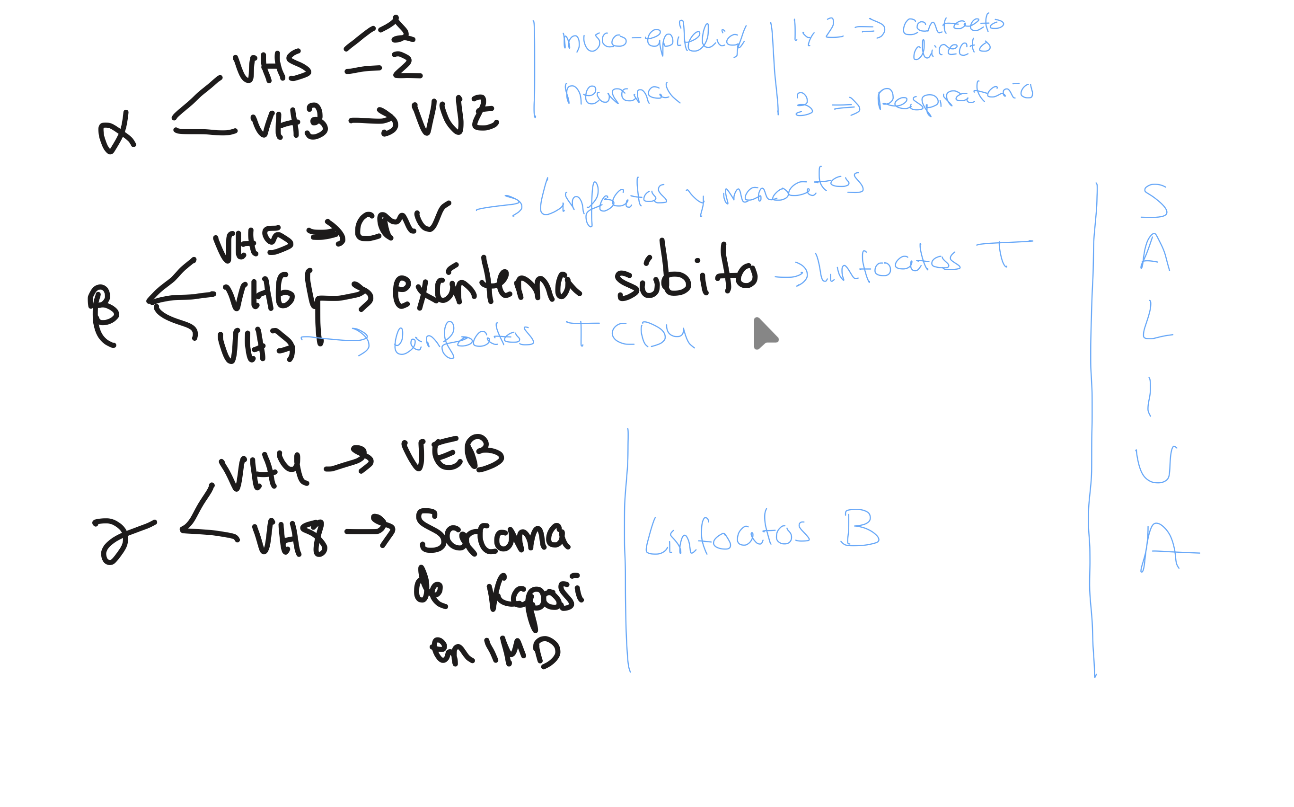 α VHS 1
2
VH3 → VVZ
muco-epitelial
neuronal
1 y 2 => contacto
directo
3 => Respiratorio
β VH5 → CMV → Linfocitos y monocitos
VH6 → exántema súbito → linfocitos T
VH7 → linfocitos TCD4
γ VH4 → VEB
VH8 → Sarcoma
de Kaposi
en IMD
Linfocitos B
S
A
L
I
V
A